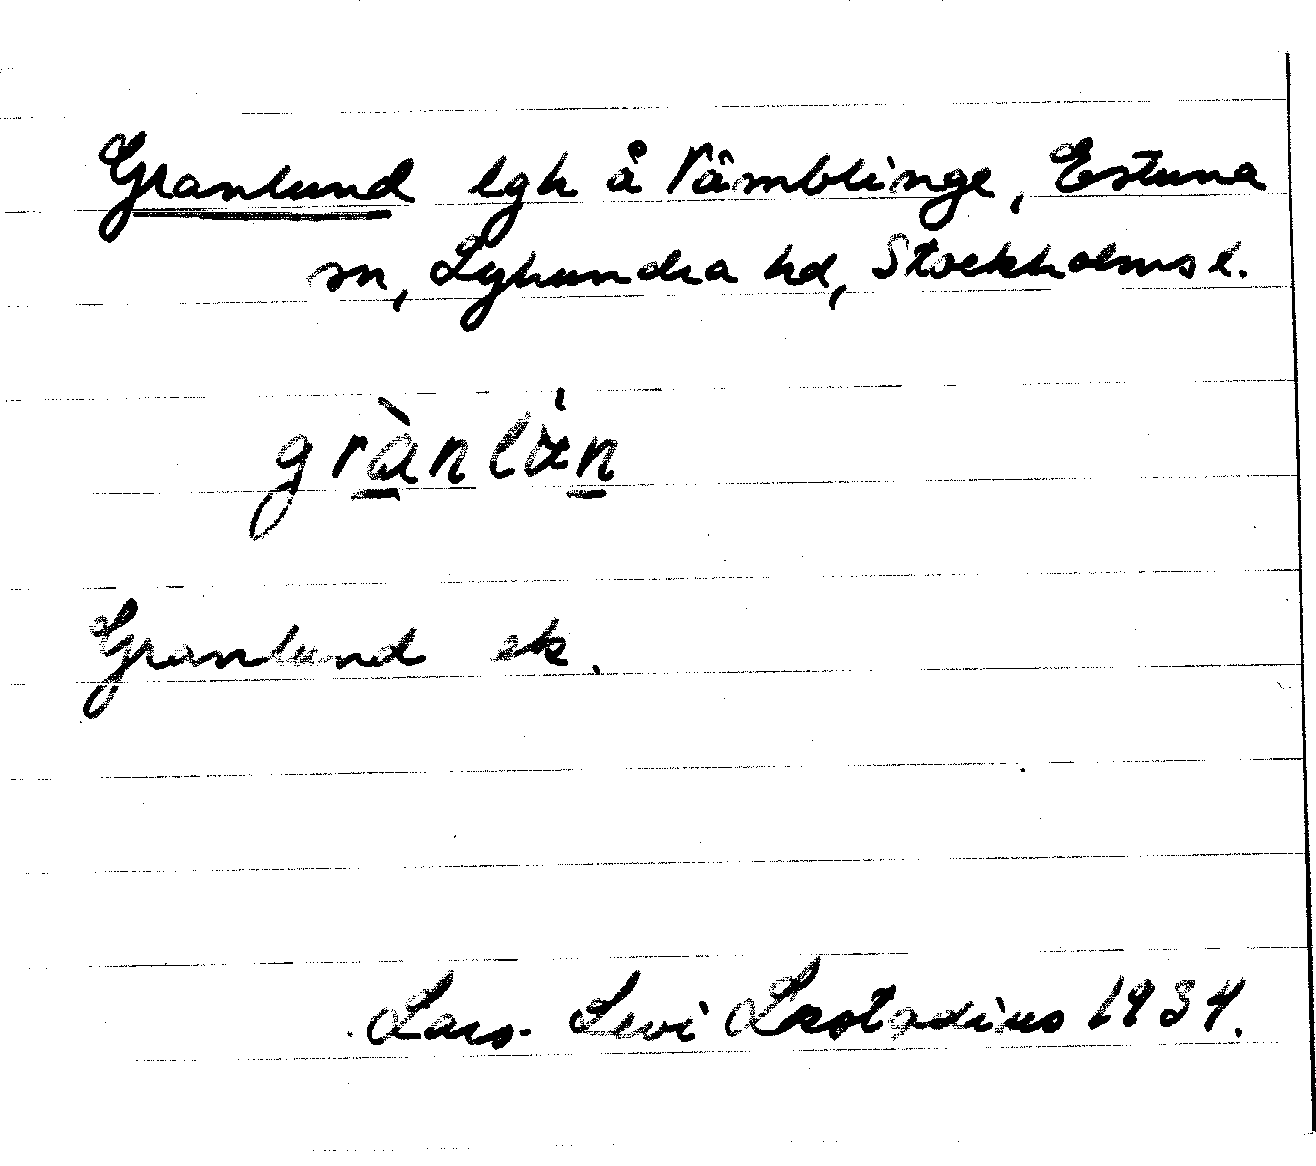 Granlund lgh å Rämblinge, Estuna
sn, Lyhundra hd, Stockholms l.
Granlund ek.
Lars-Levi Læstadius 1934.